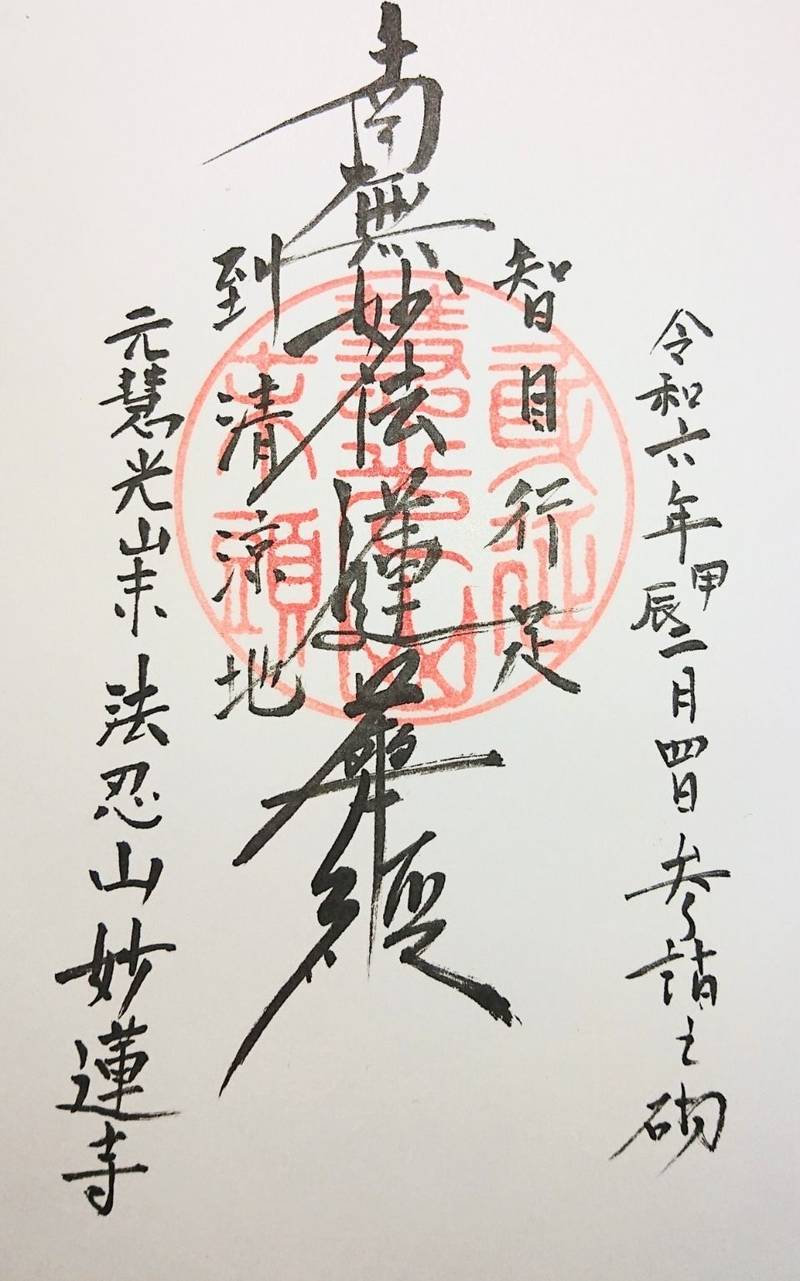 令和六年甲辰二月四日参詣之砌
智目行足
南無妙法蓮華経
到清涼地
元慧光山末法忍山妙蓮寺